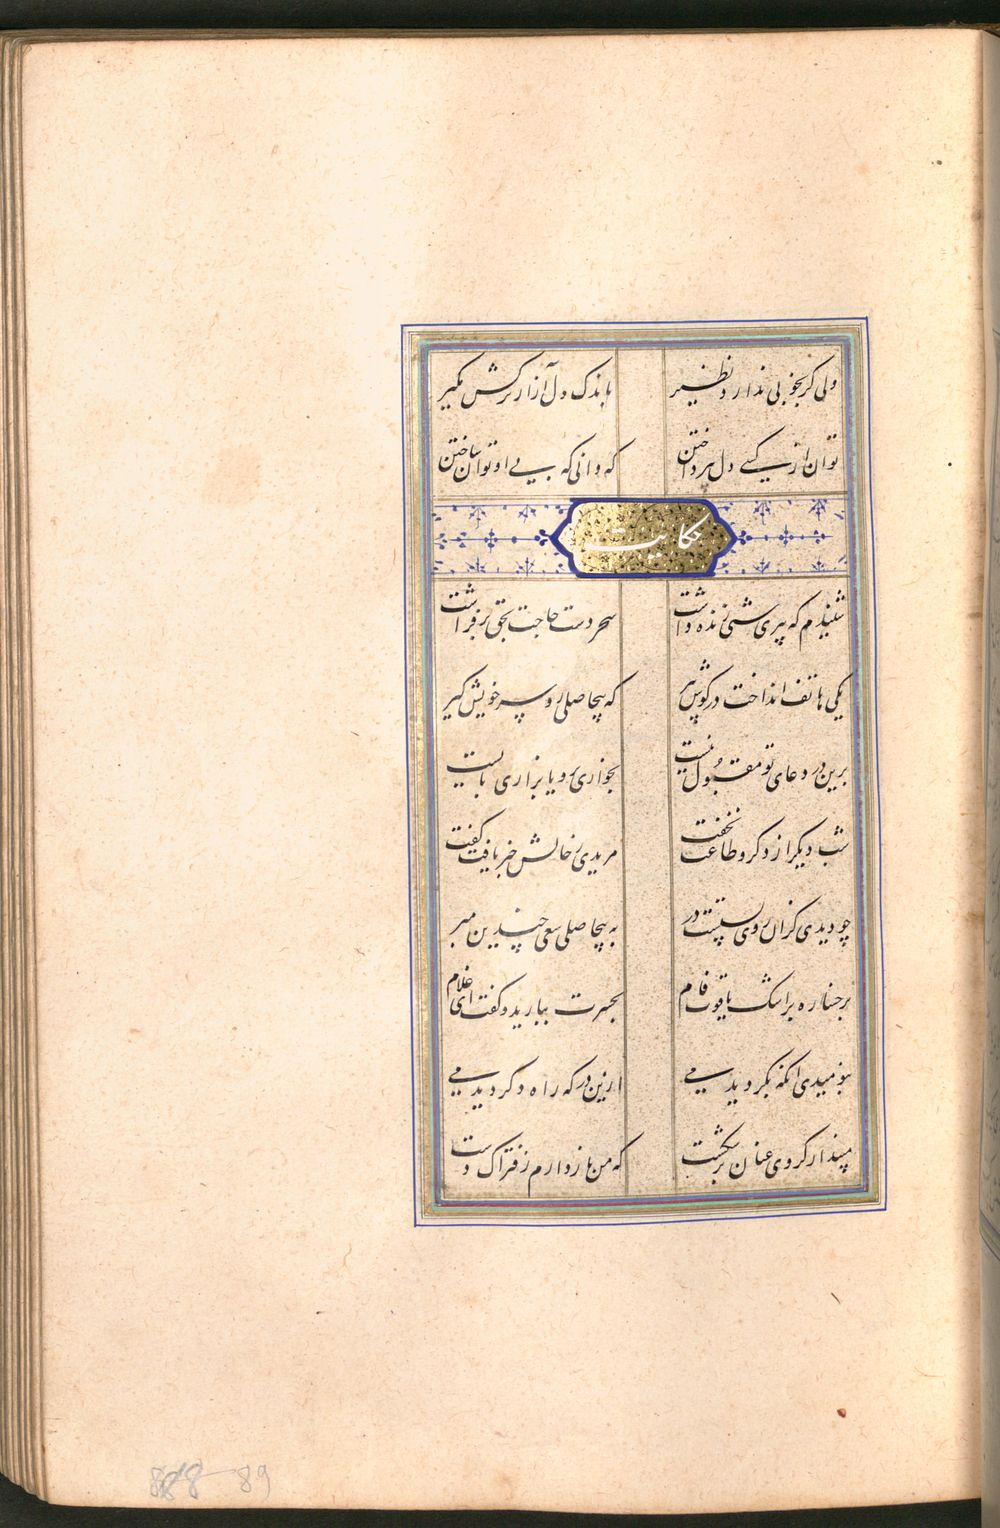 ولی گر بخوبی ندارد نظیر باندک دل آزار ترکش مگیر
توان از کسی دل بپرداختن که دانی که بی او توان ساختن
حکایت
شنیدم که پیری شبی زنده داشت سحر دست حاجت بحق بر فراشت
یکی هاتف انداخت در گوش پیر که بیحاصلی رو سر خویش گیر
برین در دعای تو مقبول نیست بخواری برو یا بزاری بایست
شب دیگر از ذکر و طاعت نخفت مریدی ز حالش خبر یافت گفت
چو دیدی کزان روی بستست در به بیحاصلی سعی چندین مبر
بر خساره بر اشک یاقوت فام بحسرت ببارید و گفت ای غلام
بنومیدی آنگه بگردیدمی ازین در که راه دگر دیدمی
مپندار گر وی عنان بر شکست که من باز دارم ز فتراک دست
888 89